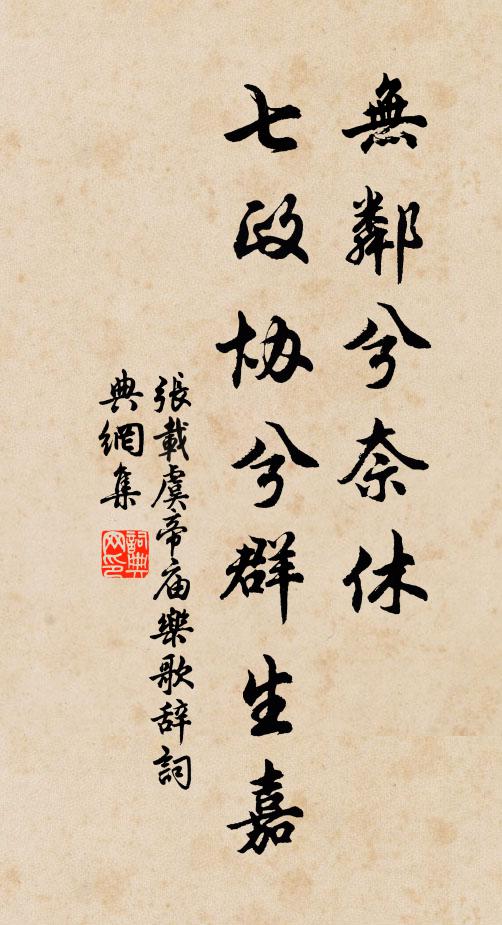 無鄰兮奈休
七政协兮群生嘉
張載虞帝庙樂歌辞詞
典網集
詞典网印